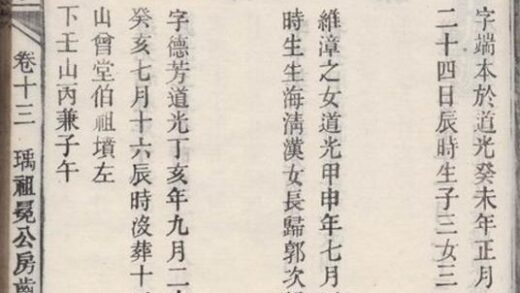 字端本於道光癸未年正月
二十四日辰時生子三女三
維漳之女道光甲申年七月
時生生海清漢女長歸郭次
字德芳道光丁亥年九月二
癸亥七月十六辰時沒葬十
山曾堂伯祖墳左
下壬山丙兼子午
卷十三 瑀祖冕公房齒